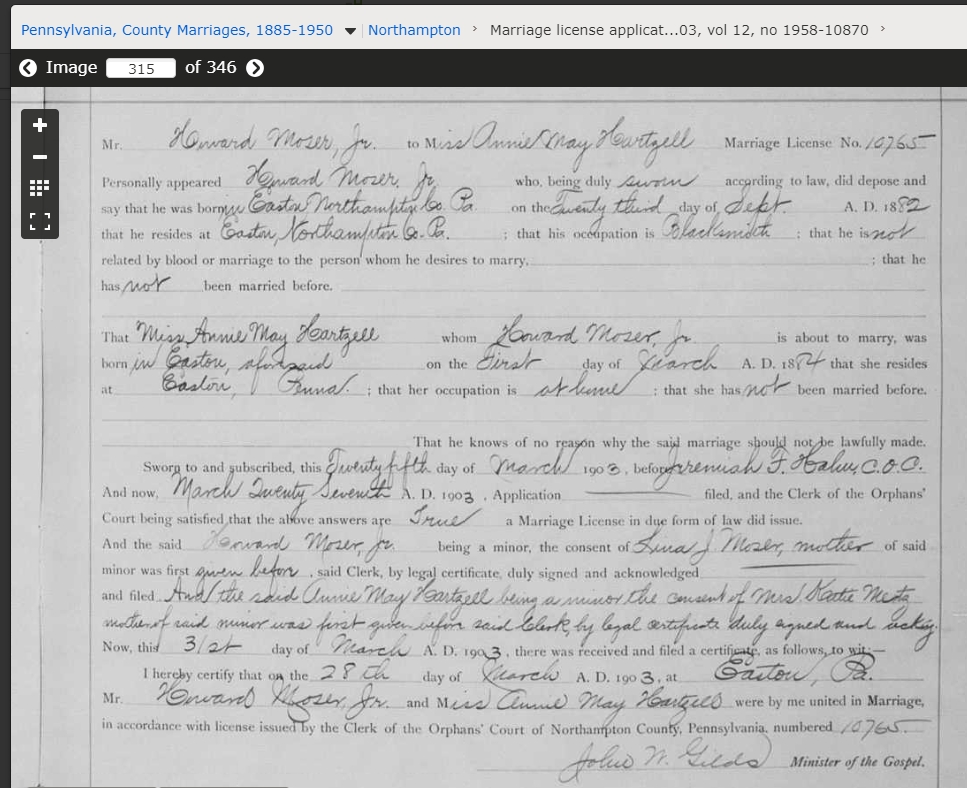 Pennsylvania, County Marriages, 1885-1950 Northampton › Marriage license applicat...03, vol 12, no 1958-10870 ›
Image 315 of 346
Mr. Howard Moser, Jr. to Miss Annie May Hartzell Marriage License No. 10765
Personally appeared Howard Moser, Jr. who, being duly sworn according to law, did depose and
say that he was born in Easton Northampton Co. Pa. on the Twenty third day of Sept. A. D. 1882
that he resides at Easton, Northampton Co. Pa. ; that his occupation is Blacksmith ; that he is not
related by blood or marriage to the person whom he desires to marry, ; that he
has not been married before.
That Miss Annie May Hartzell whom Howard Moser, Jr. is about to marry, was
born in Easton, aforesaid on the First day of March A. D. 1884 that she resides
at Easton, Penna. ; that her occupation is at home ; that she has not been married before.
That he knows of no reason why the said marriage should not be lawfully made.
Sworn to and subscribed, this Twenty fifth day of March 1903, before Jeremiah F. Hahn, C.O.C.
And now, March Twenty Seventh A. D. 1903, Application filed, and the Clerk of the Orphans'
Court being satisfied that the above answers are True a Marriage License in due form of law did issue.
And the said Howard Moser, Jr. being a minor, the consent of J Moser, mother of said
minor was first given before, said Clerk, by legal certificate, duly signed and acknowledged
and filed. And the said Annie May Hartzell being a minor the consent of Mrs. Katie
mother of said minor was first given before said Clerk, by legal certificate duly signed and ackg.
Now, this 31st day of March A. D. 1903, there was received and filed a certificate, as follows, to wit:—
I hereby certify that on the 28th day of March A. D. 1903, at Easton, Pa.
Mr. Howard Moser, Jr. and Miss Annie May Hartzell were by me united in Marriage,
in accordance with license issued by the Clerk of the Orphans' Court of Northampton County, Pennsylvania, numbered 10765.
John W. Gilds Minister of the Gospel.